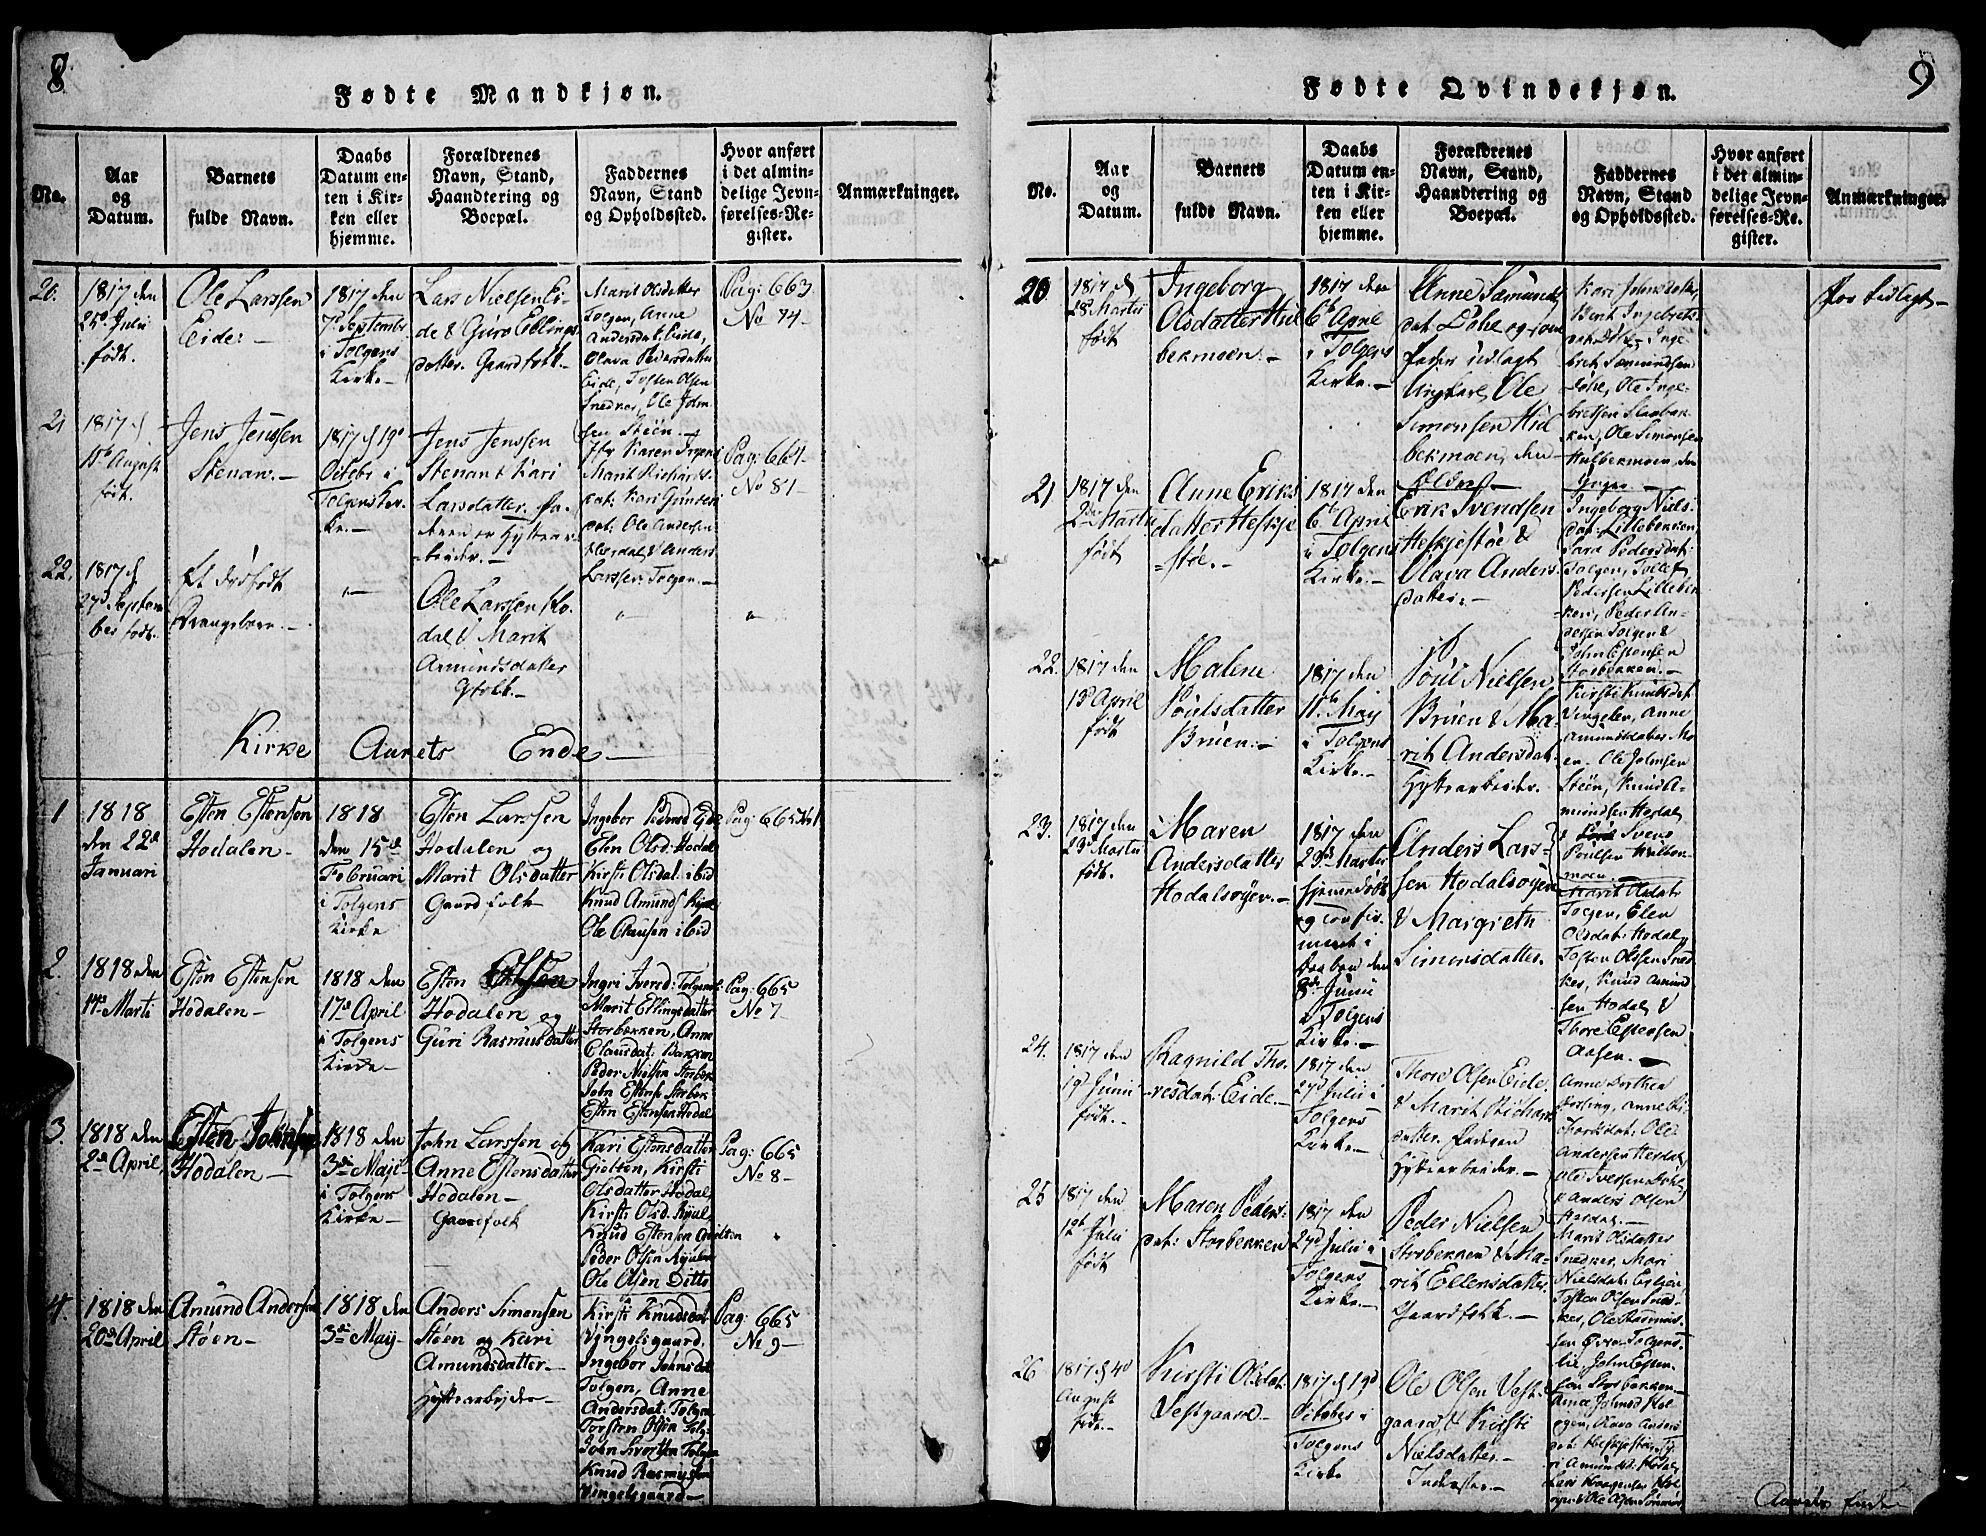 8
Fødte Mandkjøn.
No.
Aar
og
Datum.
Barnets
fulde Navn.
Daabs
Datum en-
ten i Kir-
ken eller
hjemme.
Forældrenes
Navn, Stand,
Haandtering og
Boepæl.
Faddernes
Navn, Stand
og Opholdssted.
Hvor anført
i det almin-
delige Jevn-
førelses-Re-
gister.
Anmærkninger.
20.
1817 den
25d Julii
født.
Ole Larssen
Eide. -
1817 den
7d Septembr
i Tolgens
Kirke. -
Lars Nielsen Ei-
de & Guro Ellings-
datter. Gaardfolk. -
Marit Olsdatter
Tolgen, Anne
Andersdat: Eide,
Olava Pedersdatter
Eide, Tosten Olsen
Snedker, Ole John-
sen Steen. -
Pag: 663.
No 74-
21
1817 d
15de August
født.
Jens Jenssen
Stenaw. -
1817 d 19d
Octobr i
Tolgens Kir-
ke. -
Jens Jenssen
Stenaw & Kari
Larsdatter. Fa-
deren er Hyttear-
beider. -
Jfr Karen Irgens
Marit Richards-
dat: Kari Gunders
dat: Ole Andersen
Hosdal & Anders
Larssen Tolgen. -
Pag: 664-
No 81-
22.
1817 d
27d Septem
ber født.
Et dødfødt
Drengebarn. -
"-
Ole Larssen Ho-
dal & Marit
Amundsdatter
Gfolk-
"
"
Kirke Aarets Ende -
1
1818
den 22d
Januari
Esten Estensen
Hodalen-
1818
den 15de
Februari
i Tolgens
Kirke
Esten Larssen
Hodalen og
Marit Olsdatter
Gaardfolk
Ingebor Pedersd Eide
Elen Olsd: Hodal
Kirsti Olsdat: ibid
Knud Amunds
Ole Clausen ibid
Pag: 665 No 1
2.
1818 den
14de Marti
Esten Estensen
Hodalen-
1818 den
17de April
i Tolgens
Kirke-
Esten Olsen
Hodalen og
Guri Rasmusdatter
Ingri Iversd: Tolgens
Marit Ellingsdatter
Storbekken, Anne
Clausdat: Bakken
Peder Nielsen Storbek
John Estens Storbek
Esten Estensen Hodal
Pag: 665
No 7-
3.
1818 den
2d April,
Esten Johnsen
Hodalen-
1818 den
3de Maji-
i Tolgens
Kirke-
John Larssen og
Anne Estensdatter
Hodalen-
Gaardfolk
Kari Estensdatter
Gielten, Kirsti
Olsdatter Hodal,
Kirsti Olsd.
Knud Estensen
Peder Olsen
Ole Olsen Ditto
Pag: 665
No 8-
4.
1818 den
20de April
Amund Andersen
Støen-
1818 den
3de Maij-
Anders Simensen
Støen og Kari
Amundsdatter-
Hyttearbeider-
Kirsti Knudsdat
Vingelsgaard,
Ingebor Johnsdat
Tolgen, Anne
Andersdat: Tolgen
Torsten Olsen Tolg:
John Tolgen
Knud Rasmussen
Vingelsgaard-
Pag: 665
No 9-
9
Fødte Qvindekjøn.
No.
Aar
og
Datum.
Barnets
fulde Navn.
Daabs
Datum en-
ten i Kir-
ken eller
hjemme.
Forældrenes
Navn, Stand,
Haandtering og
Boepæl.
Faddernes
Navn, Stand
og Opholdssted.
Hvor anført
i det almin-
delige Jevn-
førelses-Re-
gister.
Anmærkninger.
20
1817 d
28de Martii
født
Ingeborg
Olsdatter Hul
bekmoen. -
1817 den
6te April
i Tolgens
Kirke. -
Anne Samunds
dat: Døhl og som
Fader udlagt
Ungkarl Ole
Simonsen Hul
bekmoen, den
Ældre -
Kari Johnsdatter
Berit Ingebrets-
dat Døhl- Inge-
bret Samundsen
Døhl, Ole Inge-
bretsen
ken, Ole Simonsen
Hulbekmoen den
Yngre -
for tidligt-
21
1817 den
2den Martii
født
Anne Eriks
datter Heskje
støe. -
1817 den
6te April
i Tolgens
Kirke. -
Erik Svendsen
Heskjestøe &
Olava Anders-
datter. -
Ingeborg Niels-
dat: Lillebekken,
Sara Pedersdat:
Tolgen, Tollef
Pedersen Lillebek-
ken, Peder An-
dersen Tolgen &
John Estensen
Storbekken. -
22.
1817 den
13d April
født
Malene
Poulsdatter
Bruen. -
1817 den
11te Maij
i Tolgens
Kirke. -
Poul Nielsen
Bruen & Ma-
rit Andersdat:
Hyttearbeider. -
Kirsti Knudsdat:
Vingelen, Anne
Amundsdatter Mo
en. Ole Johnsen
Steen, Knud A-
mundsen Hosdal
& Svend
Poulsen Hulbek-
moen. -
23.
1817 den
23d Martii
født.
Maren
Andersdatter
Hodalsøyen. -
1817 den
29de Martii
hjemmedøbt
og confir-
meret i
Daaben den
8de Junii
i Tolgens
Kirke. -
Anders Lars-
sen Hodalsøyen
& Margreth
Simonsdatter.
Marit Olsdat:
Tolgen, Elen
Olsdat: Hodal,
Tosten Olssen Sned-
ker, Knud Amund
sen Hodal &
Thore Estensen
Aasen. -
24.
1817 den
19d Junii
født. -
Ragnild Tho-
resdat: Eide. -
1817 den
27d Julii i
Tolgens
Kirke. -
Thore Olsen Eide,
& Marit Richards
datter. Faderen
Hyttearbeider. -
Anne Dorthea
Anne Ri-
chardsdat: Ole
Andersen Hosdal,
Ole Iversen Døhl
& Anders Olsen
Hosdal. -
25
1817 den
12te Julii
født
Maren Peders-
dat: Storbekken
1817 den
27d Julii i
Tolgens
Kirke. -
Peder Nielsen
Storbekken & Ma-
rit Ellensdatter.
Gaardfolk. -
Marit Olsdatter
Snedker, Mari
Nielsdat:
Tosten Olsen Sned-
ker, Ole Rasmus-
sen Øvre Tolgens-
lie, John Esten-
sen Storbekken-
26
1817 d 4d
August
født. -
Kirsti Olsdat:
Vestgaard-
1817 d 19d
October i
Tolgens
Kirke
Ole Olsen Vest-
gaard & Kirsti
Nielsdatter. -
Inderster. -
Anne Johnsd
Olava Anders
dat: Heskjestøe
ri Amundsd: Hodal,
Aarets Ende